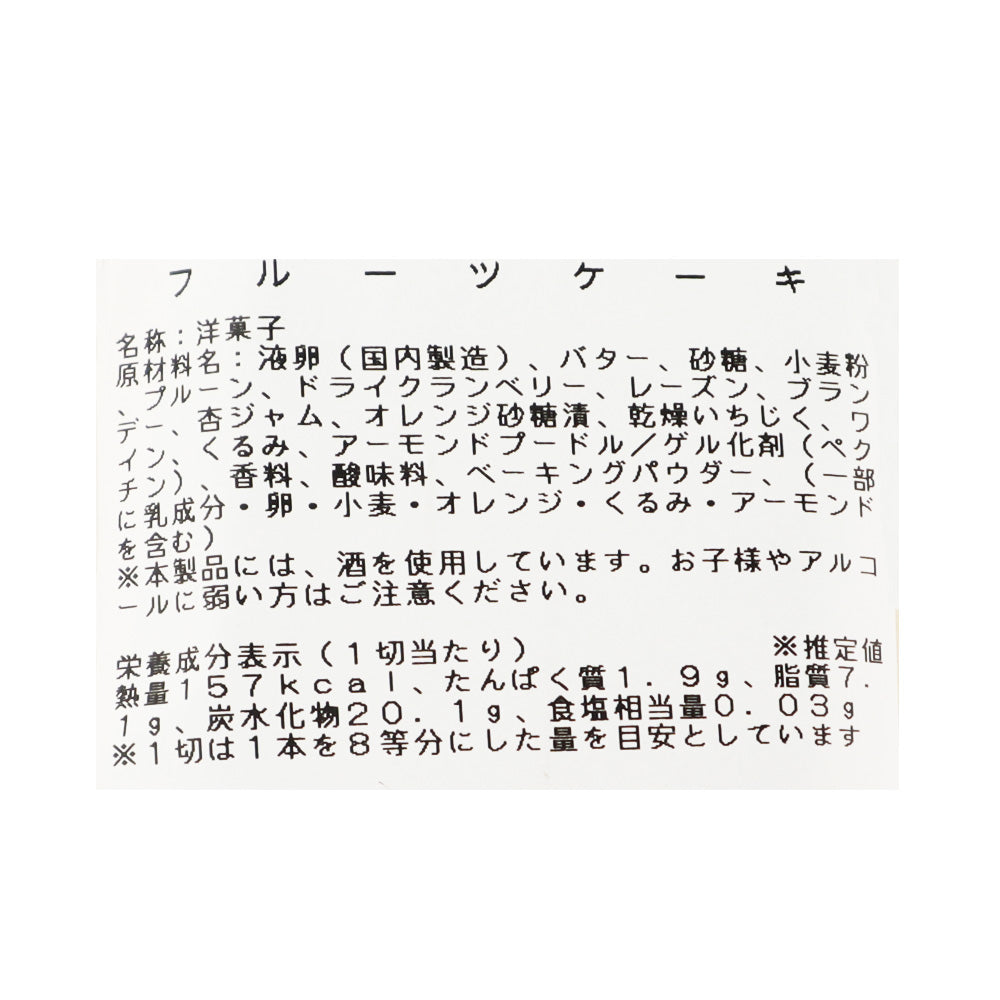 フルーツケーキ
名称：洋菓子
原材料名：液卵（国内製造）、バター、砂糖、小麦粉
、プルーン、ドライクランベリー、レーズン、ブラン
デー、杏ジャム、オレンジ砂糖漬、乾燥いちじく、ワ
イン、くるみ、アーモンドプードル／ゲル化剤（ペク
チン）、香料、酸味料、ベーキングパウダー、（一部
に乳成分・卵・小麦・オレンジ・くるみ・アーモンド
を含む）
※本製品には、酒を使用しています。お子様やアルコ
ールに弱い方はご注意ください。
栄養成分表示（１切当たり）　※推定値
熱量１５７ｋｃａｌ、たんぱく質１．９ｇ、脂質７．
１ｇ、炭水化物２０．１ｇ、食塩相当量０．０３ｇ
※１切は１本を８等分にした量を目安としています